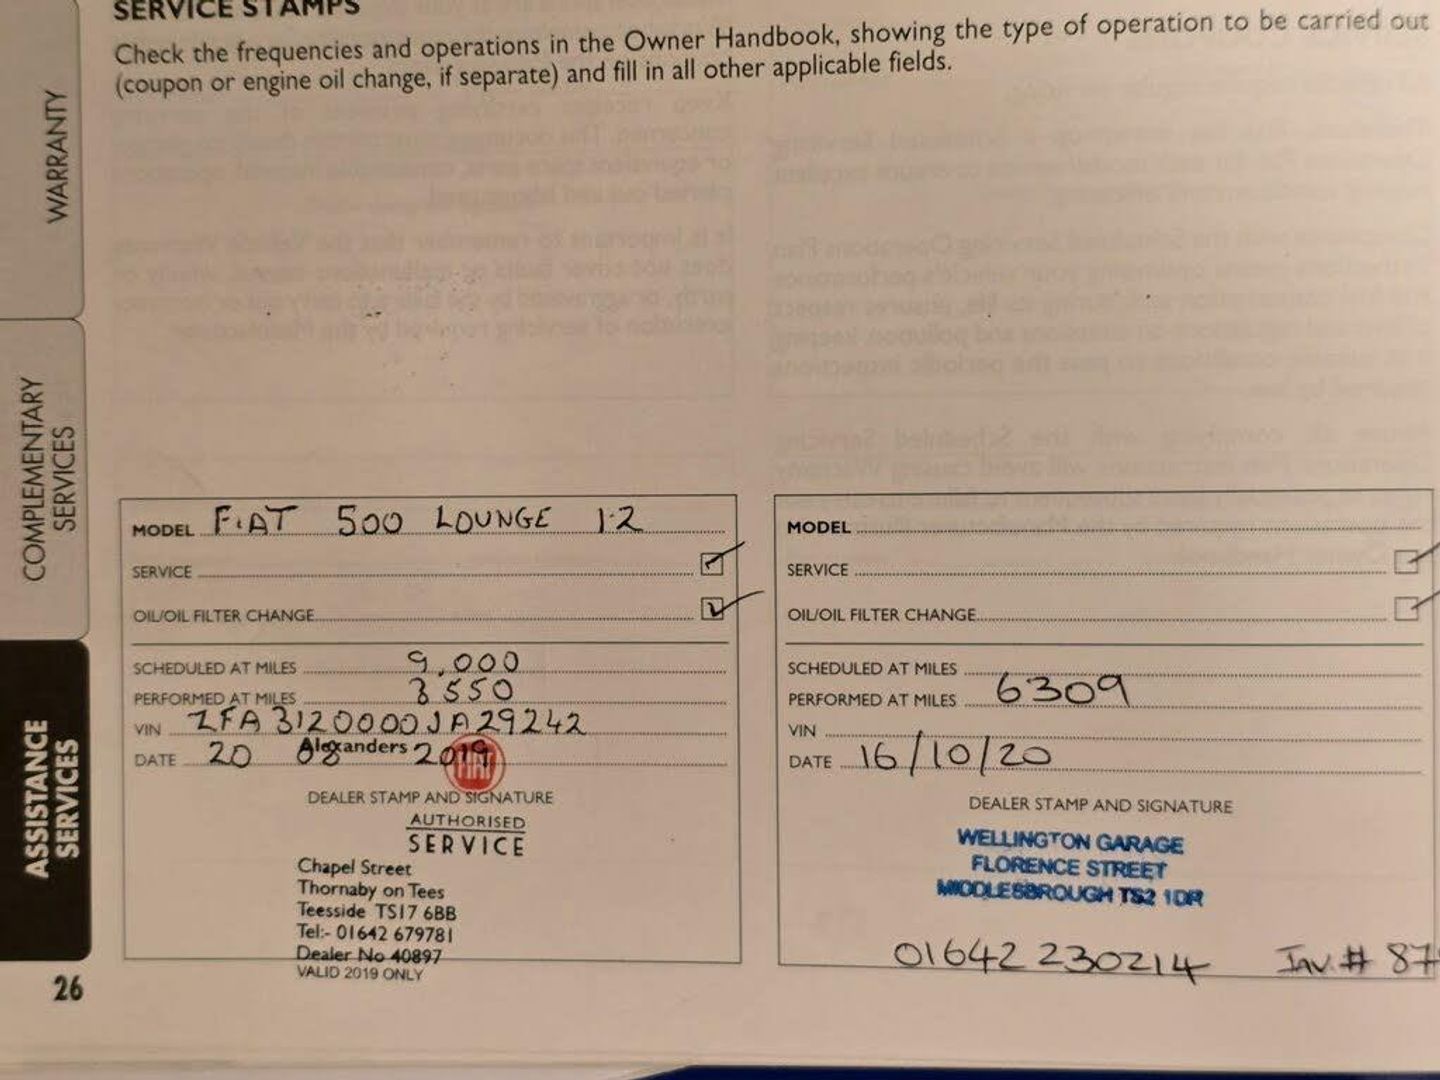 SERVICE STAMPS
Check the frequencies and operations in the Owner Handbook, showing the type of operation to be carried out
(coupon or engine oil change, if separate) and fill in all other applicable fields.
WARRANTY
COMPLEMENTARY
SERVICES
ASSISTANCE
SERVICES
26
MODEL FIAT 500 LOUNGE 1.2
SERVICE
OIL/OIL FILTER CHANGE
SCHEDULED AT MILES 9,000
PERFORMED AT MILES 3550
VIN ZFA3120000JA29242
DATE 20 08 2019
Alexanders
FIAT
DEALER STAMP AND SIGNATURE
AUTHORISED
SERVICE
Chapel Street
Thornaby on Tees
Teesside TS17 6BB
Tel:- 01642 679781
Dealer No 40897
VALID 2019 ONLY
MODEL
SERVICE
OIL/OIL FILTER CHANGE
SCHEDULED AT MILES
PERFORMED AT MILES 6309
VIN
DATE 16/10/20
DEALER STAMP AND SIGNATURE
WELLINGTON GARAGE
FLORENCE STREET
MIDDLESBROUGH TS2 1DR
01642 230214 Inv. # 87